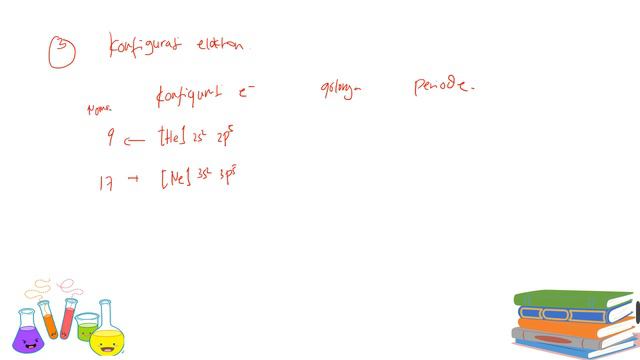 3 Konfigurasi elektron.
Nomor Konfigurasi e⁻ golongan periode.
9 ← [He] 2s² 2p⁵
17 → [Ne] 3s² 3p⁵